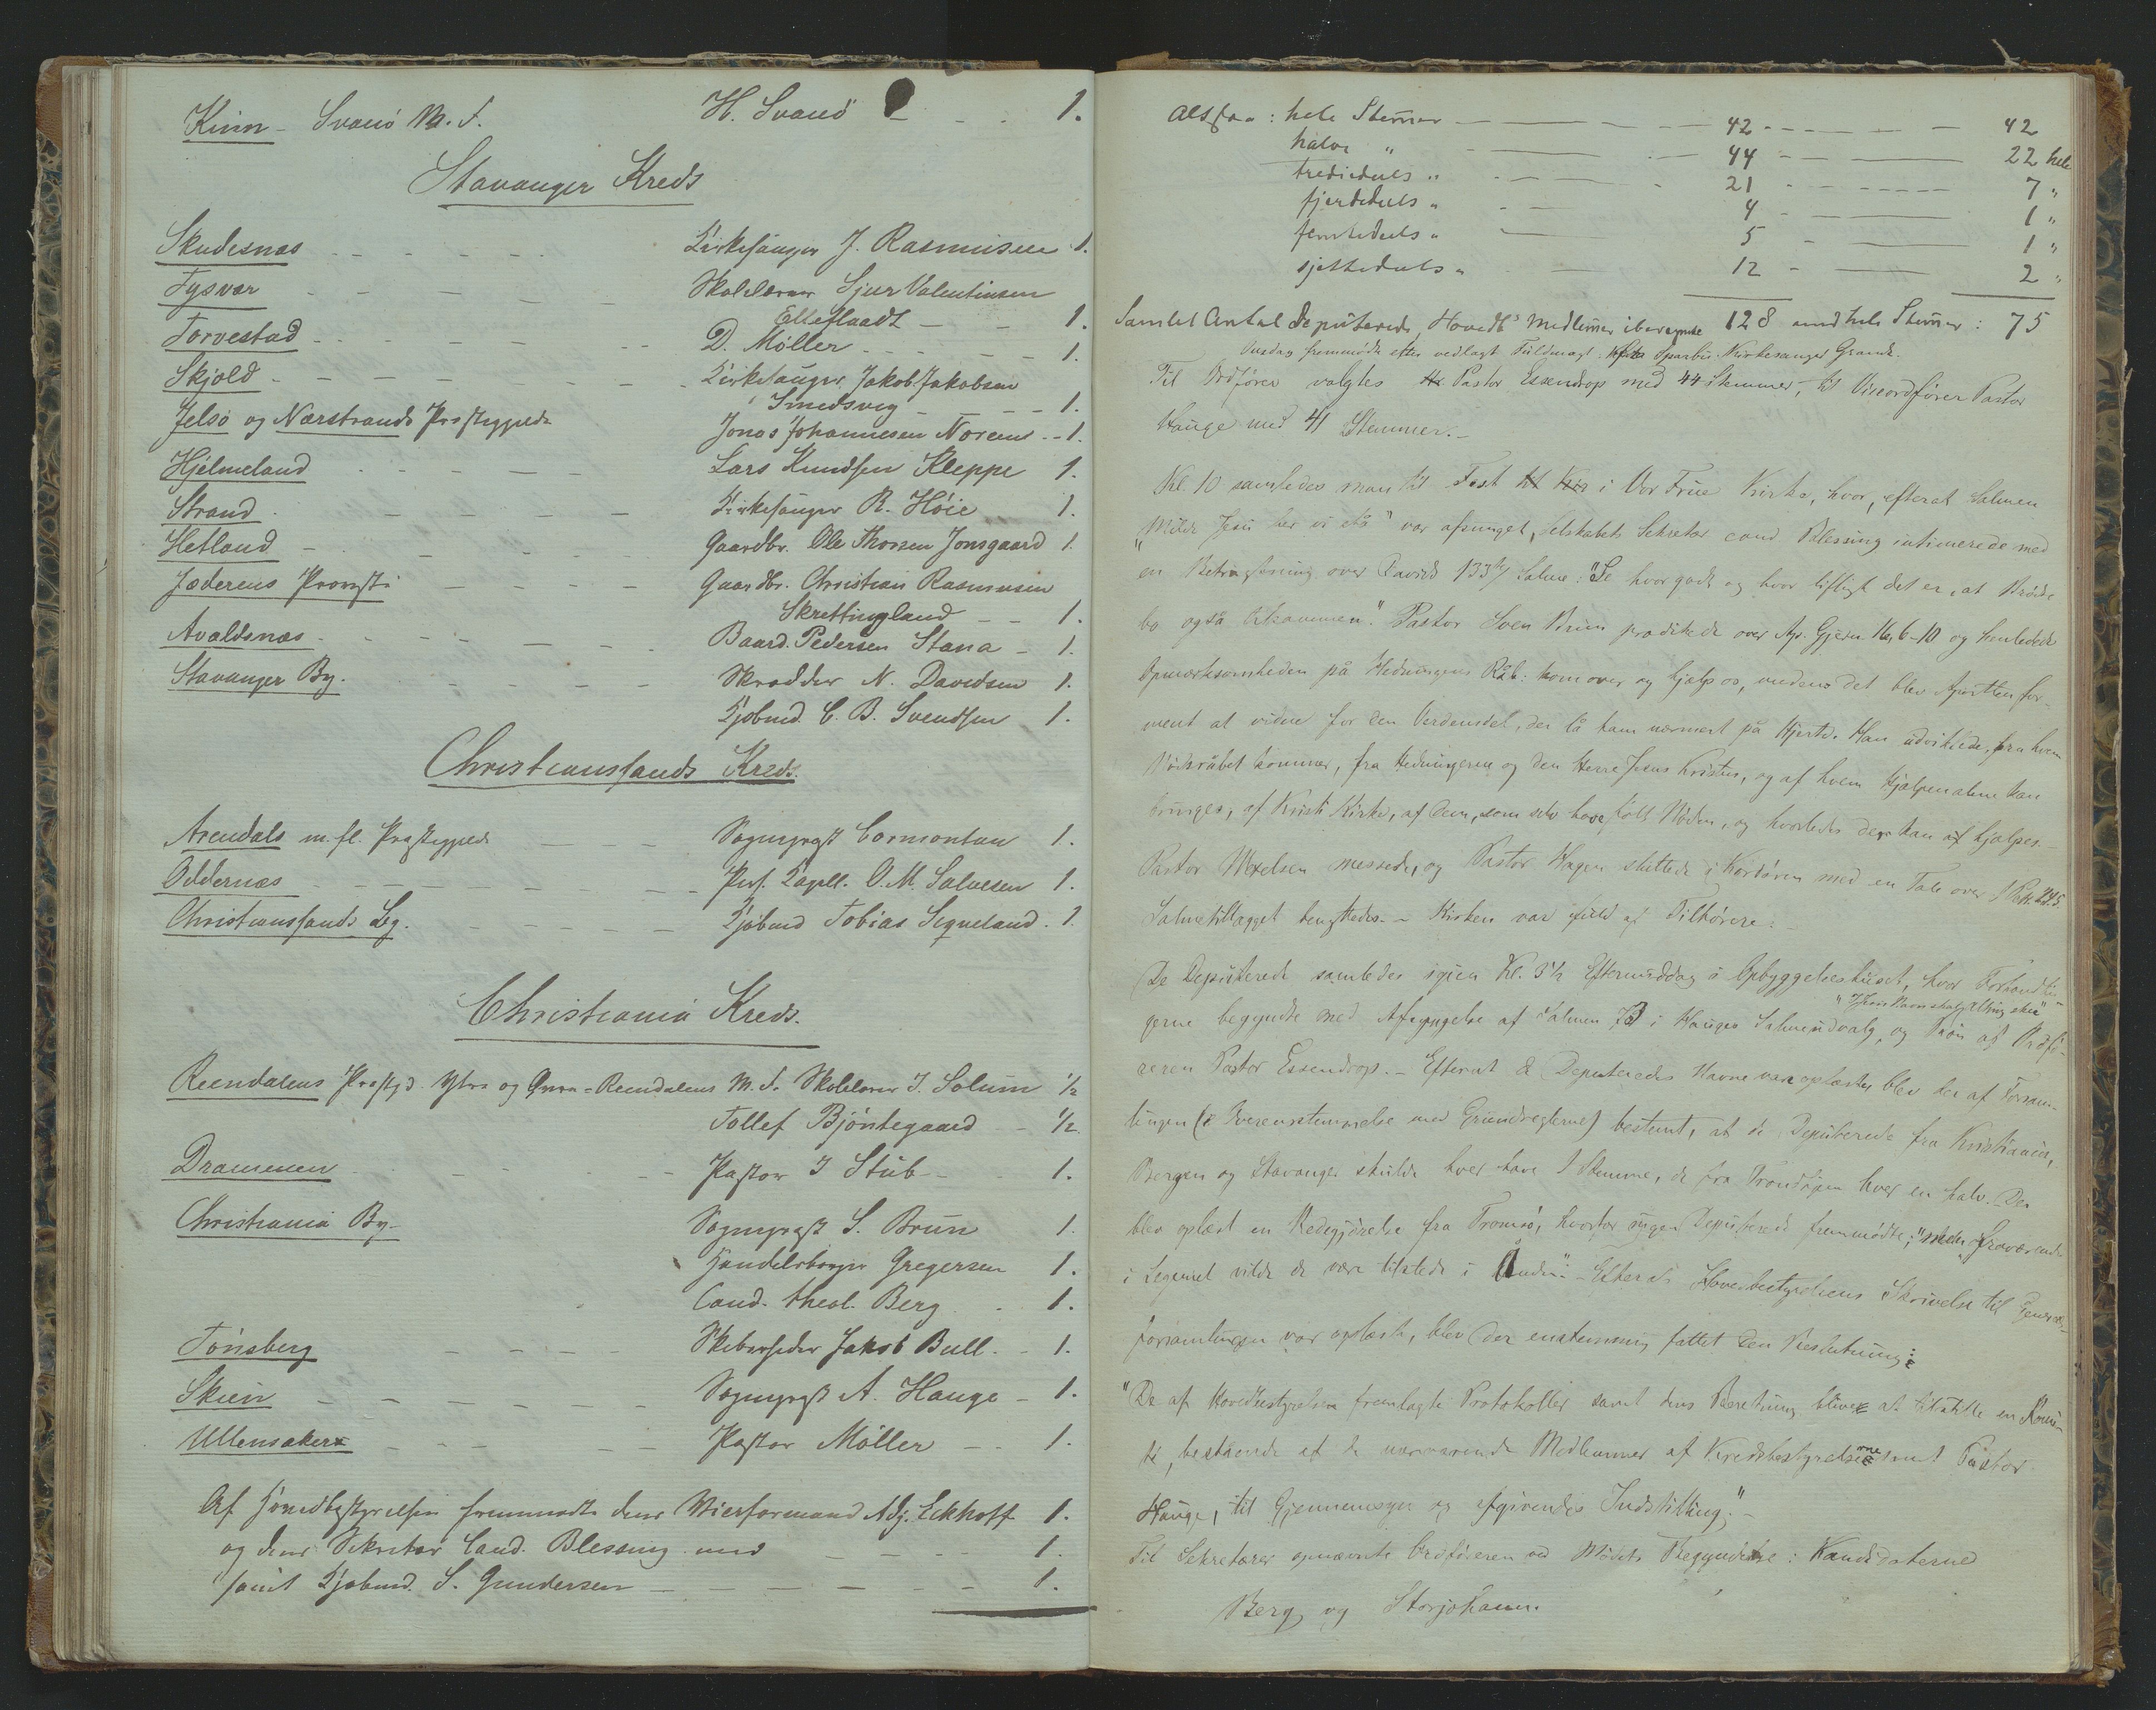 Kinn - Svanö M. F. H. Svanö - - . 1.
Stavanger Kreds
Skudesnæs - - - - - Kirkesanger J. Rasmusen 1.
Tysvær - - - - - Skolelærer Sjur Valentinsen
Elleflaadt - - 1.
Torvestad - - - - - D. Møller - - - - 1.
Skjold - - - - - - Kirkesanger Jakob Jakobsen
Smedsvig - - - - 1.
Jelsø og Nærstrands Præstegjeld Jonas Johannesen Norem - - 1.
Hjelmeland - - - - Lars Knudsen Kleppe 1.
Strand - - - - Kirkesanger R. Höie 1.
Hetland - - - - Gaardbr. Ole Thorsen Jonsgaard 1.
Jæderens Provsti - - - Gaardbr. Christian Rasmussen
Skrettingland - - 1.
Avaldsnæs - - - - - Baard Pedersen Stana - 1.
Stavanger By. - - - - Skrædder N. Davidsen 1.
Kjøbmd. C. B. Svendsen 1.
Christianssands Kreds.
Arendals m. fl. Præstegjeld - - - Sogneprest Cormontan 1.
Oddernæs - - - - - - Pers. Kapell. O. M. Salvesen 1.
Christianssands By. - - - - Kjøbmd Tobias Seqveland. 1.
Christiania Kreds.
Reendalens Præstgd. Ytre og Øvre-Reendalens M. F. Skolelærer J. Solum 1/2
Tollef Bjöntegaard - 1/2
Drammen - - - - Pastor J Stub - - 1.
Christiania By - Sogneprest S. Brun 1.
Handelsborger Gregersen 1.
Cand. theol. Berg - . 1.
Tønsberg - - - - Skibsrheder Jakob Bull. - 1.
Skien - - - - - - Sogneprest A. Hauge - 1.
Ullensaker - - - - - Pastor Møller - - 1.
Af Hovedbestyrelsen fremmødte dens Viceformand Adj. Eckhoff 1.
og dens Sekretær Cand. Blessing med - - - - 1.
samt Kjøbmd. S. Gundersen - - - - - 1.
Altsaa: hele Stemmer - - - 42 - - - - 42
halve " - - - 44 - - - 22 hele
trediedels " - - - 21 - - - 7 "
fjerdedels " - - 4 - - - 1 "
femtedels " - - 5 - - - 1 "
sjettedels " - - 12 - - - 2 "
Samlet Antal Deputerede, Hovedb's Medlemmer iberegnede 128 med hele Stemmer: 75
Onsdag fremmødte efter vedlagt Fuldmagt: Sparbu. Kirkesanger Grande.
Til Ordfører valgtes Pastor Essendrop med 44 Stemmer, til Viceordfører Pastor
Hauge med 41 Stemmer. -
Kl. 10 samledes man til Fest i Vor Frue Kirke, hvor, efterat Salmen
"Milde Jesu her vi stå" var afsunget, Selskabets Sekretær cand Blessing intimerede med
en Betragtning over Davids 133te Salme: "Se hvor godt og hvor lifligt det er, at Brødre
bo også tilsammen". Pastor Sven Brun prædikede over Ap. Gjern. 16, 6-10 og henledede
Opmærksomheden på Hedningens Råb: kom over og hjælp os, medens det blev Apostlen for-
ment at vidne for den Verdensdel, der lå ham nærmest på Hjerte. Han udviklede, fra hvem
Nødråbet kommer, fra Hedningerne og den Herre Jesus Kristus, og af hvem Hjælpen alene kan
bringes, af Kristi Kirke, af dem, som selv have følt Nøden, og hvorledes der kan hjælpes. -
Pastor Wexelsen messede, og Pastor Hagen sluttede i Kordøren med en Tale over 1 Pet. 2,4.5.
Salmetillægget benyttedes. - Kirken var fuld af Tilhørere. -
De Deputerede samledes igjen Kl. 3 1/2 Eftermiddag i Opbyggelseshuset, hvor Forhandlin-
"I Jesu Navn skal al Ting ske"
gerne begyndte med Afsyngelse af Salmen 73 i Hauges Salmeudvalg, og Bøn af Ordfø-
reren Pastor Essendrop. - Efterat de Deputeredes Navne var oplæste, blev der af Forsam-
lingen (i Overensstemmelse med Grundreglerne) bestemt, at de Deputerede fra Kristiania,
Bergen og Stavanger skulde hver have 1 Stemme, de fra Trondhjem hver en halv. Der
blev oplæst en Redegjørelse fra Tromsø, hvorfor ingen Deputerede fremmødte; "men fraværende
i Legemet vilde de være tilstede i Ånden". - Efterat Hovedbestyrelsens Skrivelse til General-
forsamlingen var oplæst, blev der enstemmig fattet den Beslutning:
"De af Hovedbestyrelsen fremlagte Protokoller samt dens Beretning blive at tilstille en Komi-
te, bestående af de nærværende Medlemmer af Kredsbestyrelserne samt Pastor
Hauge, til Gjennemsyn og afgivendes Indstilling." -
Til Sekretærer opnævnte Ordføreren ved Mødets Begyndelse: Kandidaterne
Berg og Storjohann.